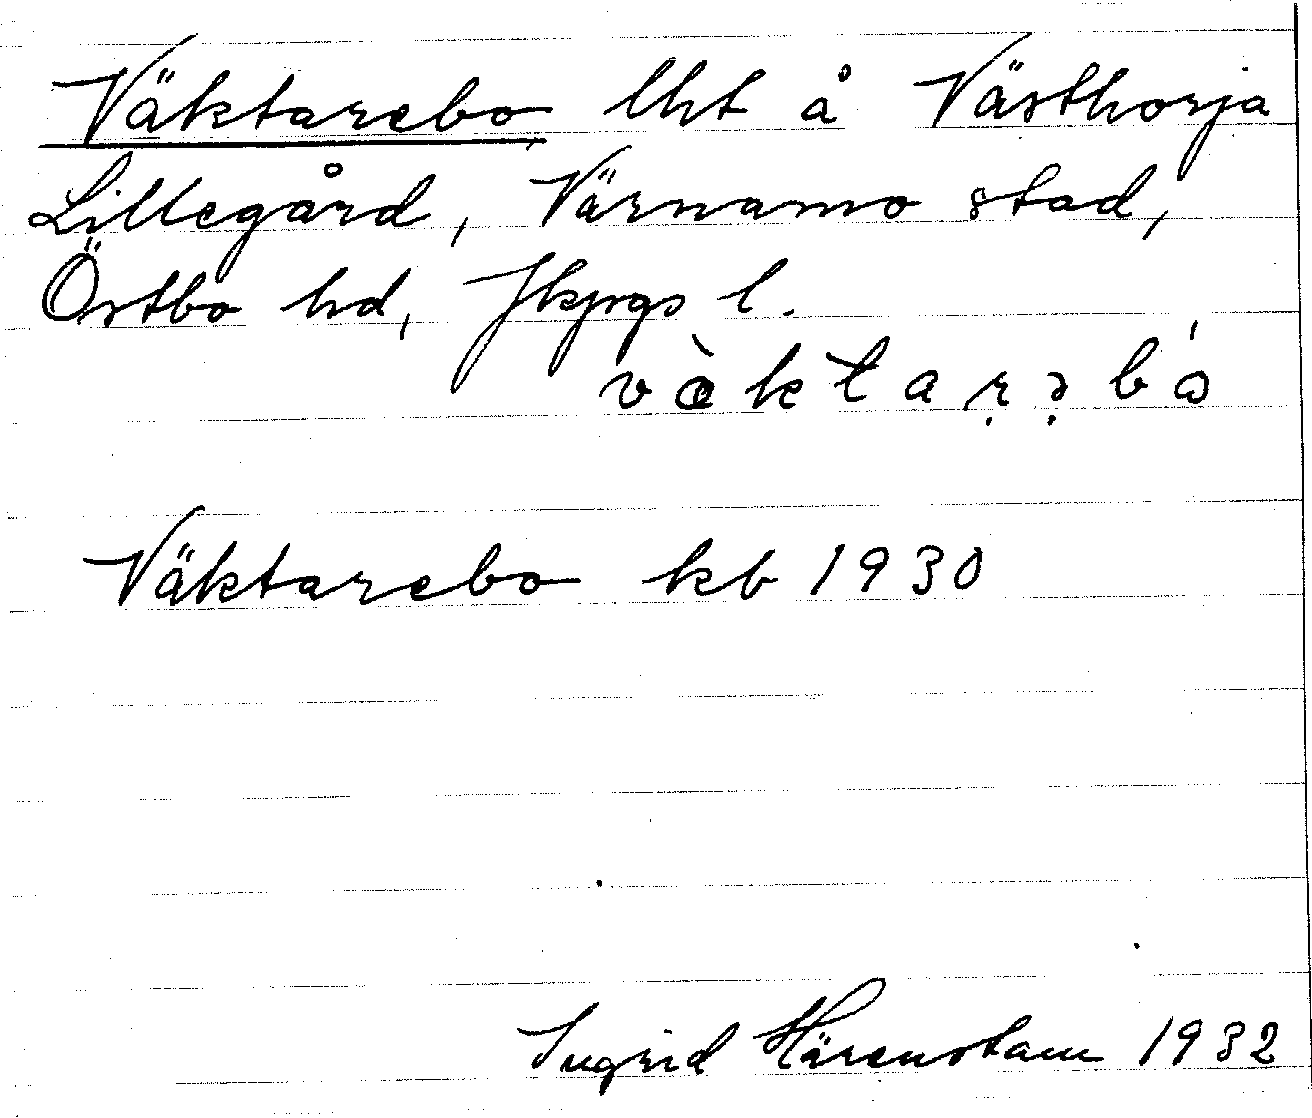 Väktarebo, lht å Västhorja
Lillegård, Värnamo stad,
Östbo hd, Jkpgs l.
Väktarebo kb 1930
Ingrid Härenstam 1932